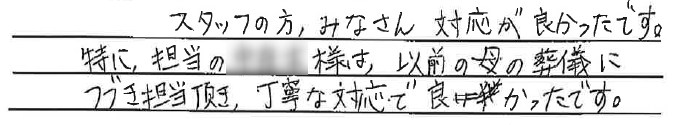 スタッフの方，みなさん 対応が 良かったです。
特に，担当の 様は，以前の母の葬儀に
つづき担当頂き，丁寧な対応で良かったです。